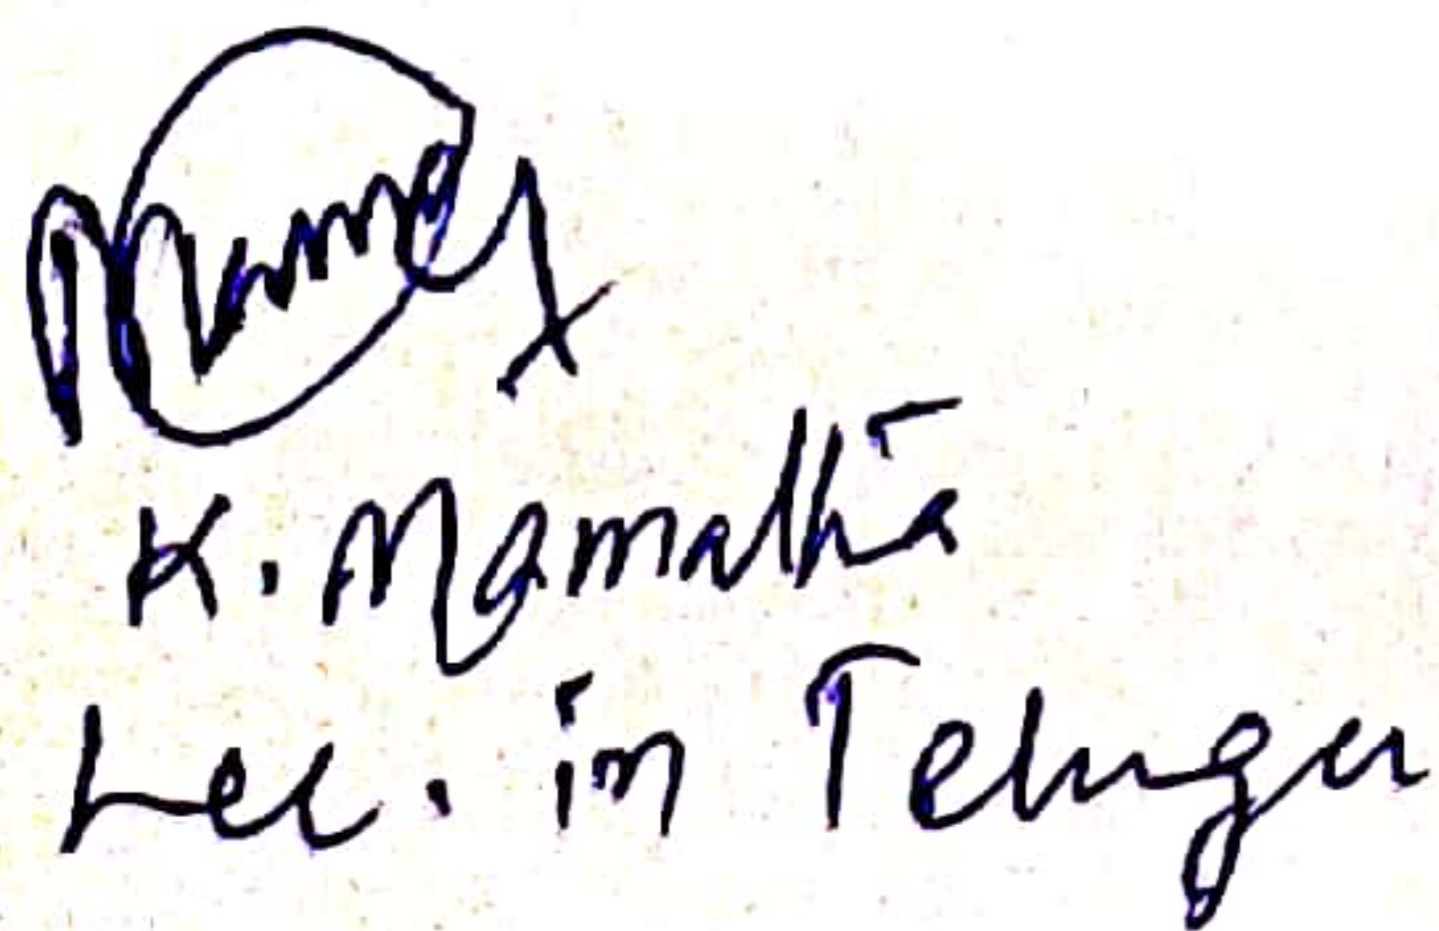 K. Mamatha
Lec. in Telugu